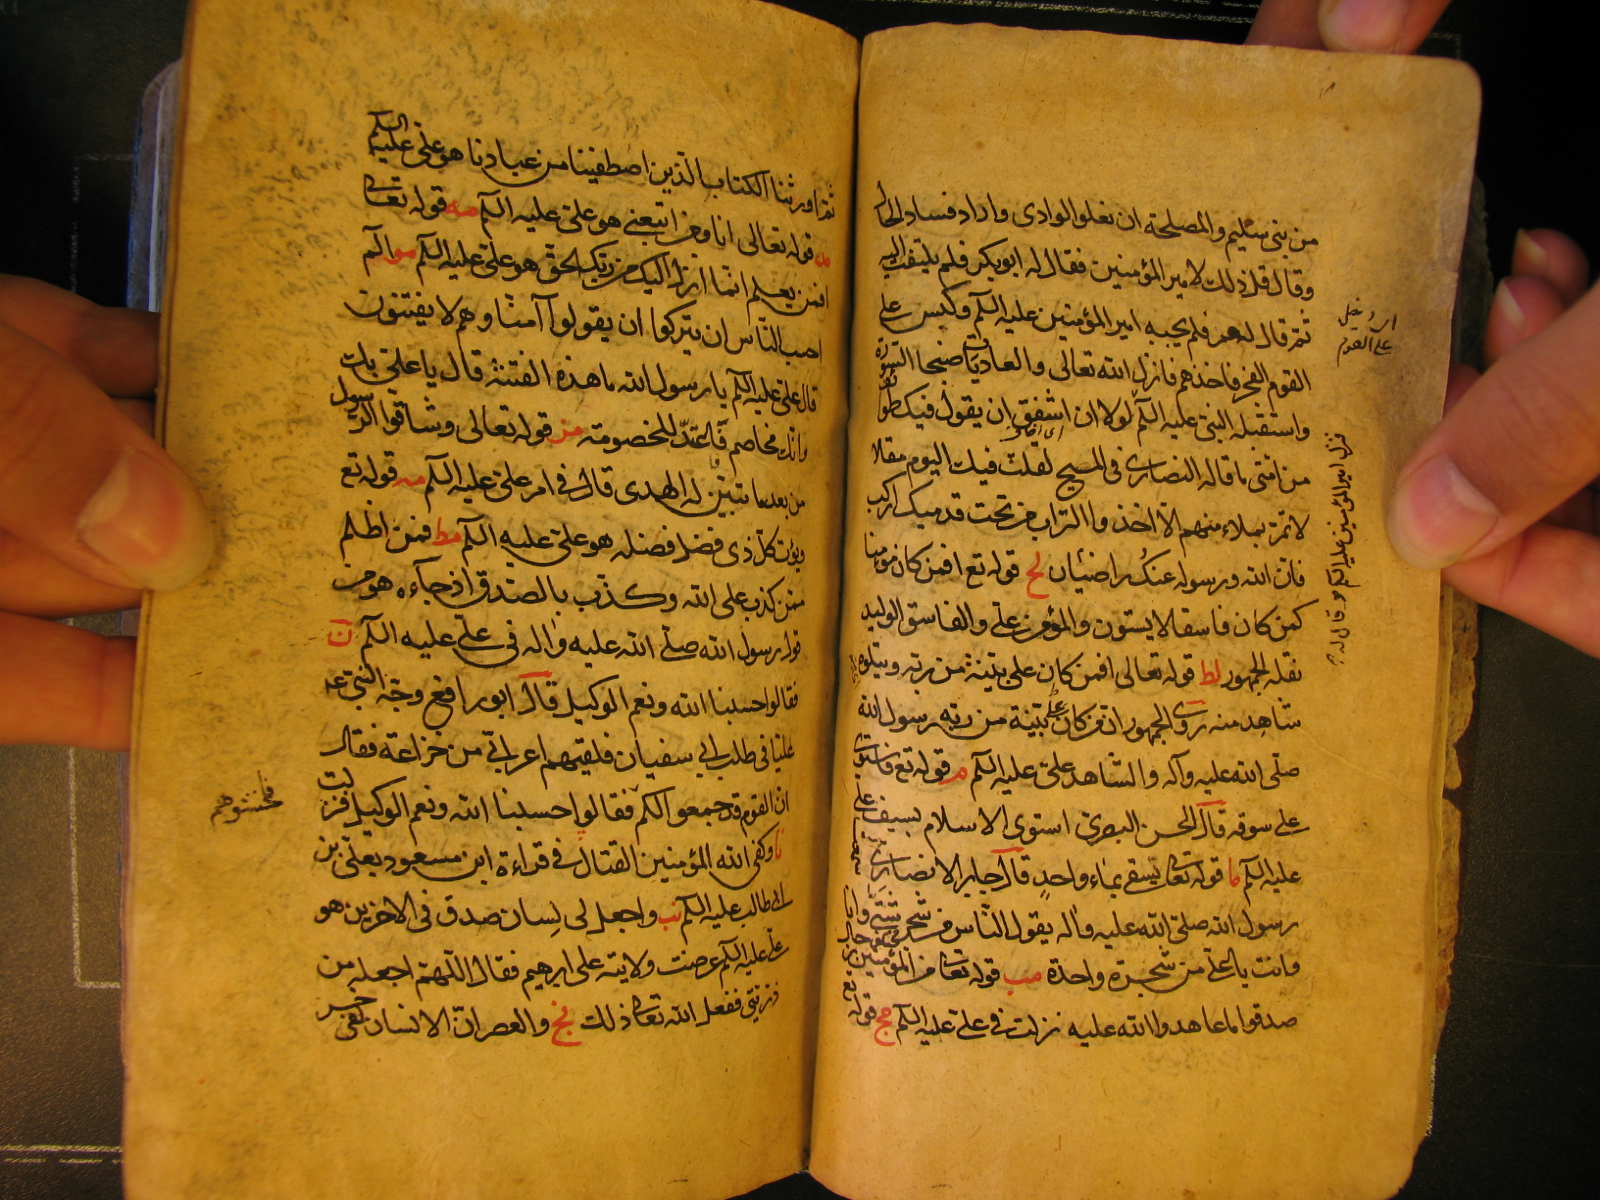 من بنى سليم والمصلحة ان نعلوا الوادى واراد فساد الحال
وقال قل ذلك لامير المؤمنين فقال له ابوبكر فلم يلتفت اليه
ثم قال له عمر فلم يجبه امير المؤمنين عليه السلم وكبس على
القوم الفجر فاخذهم فانزل الله تعالى والعاديات ضبحا السورة
واستقبله النبى عليه السلم لولا ان اشفق ان يقول فيك طوائف
من امتى ما قاله النصارى فى المسيح لقلت فيك اليوم مقالا
لا تمر بملاء منهم الا اخذوا التراب من تحت قدميك اركب
فان الله ورسوله عنك راضيان لح قوله تع افمن كان مومنا
كمن كان فاسقا لا يستون والمؤمن على والفاسق الوليد
نقله الجمهور لط قوله تعالى افمن كان على بينة من ربه ويتلوه
شاهد منه روى الجمهور ان من كان على بينة من ربه رسول الله
صلى الله عليه وآله والشاهد على عليه السلم م قوله تع فاستوى
على سوقه قال الحسن البصرى استوى الاسلام بسيف على
عليه السلم ما قوله تعالى تسقى بماء واحد قال جابر الانصارى
رسول الله صلى الله عليه واله يقول الناس من شجر شتى وانا
وانت يا على من شجرة واحدة مب قوله تعالى من المؤمنين رجال
صدقوا ما عاهدوا الله عليه نزلت فى على عليه السلم مج قوله تع
على القوم
فنزل امير المؤمنين عليه السلم وقال له
ثم اورثنا الكتاب الذين اصطفينا من عبادنا هو على عليه السلم
مد قوله تعالى انا ومن اتبعنى هو على عليه السلم مه قوله تعالى
افمن يعلم انما انزل اليك من ربك الحق هو على عليه السلم مو الم
احسب الناس ان يتركوا ان يقولوا آمنا وهم لا يفتنون
قال على عليه السلم يا رسول الله ما هذه الفتنة قال يا على بك
وانك مخاصم فاعتد للخصومة مز قوله تعالى وشاقوا الرسول
من بعد ما تبين له الهدى قال فى امر على عليه السلم مح قوله تع
ويؤت كل ذى فضل فضله هو على عليه السلم مط فمن اظلم
ممن كذب على الله وكذب بالصدق اذ جآءه هو من
قول رسول الله صلى الله عليه واله فى على عليه السلم ن
فقالوا حسبنا الله ونعم الوكيل قال ابو رافع وجه النبى عه
عليا فى طلب ابى سفيان فلقيهم اعرابى من خزاعة فقال
ان القوم قد جمعوا لكم فقالوا حسبنا الله ونعم الوكيل فنزلت
نا وكفى الله المؤمنين القتال فى قراءة ابن مسعود بعلى بن
ابى طالب عليه السلم نب واجعل لى لسان صدق فى الاخرين هو
على عليه السلم عرضت ولايته على ابرهيم فقال اللهم اجعله من
ذريتى ففعل الله تعالى ذلك نج والعصر ان الانسان لفى خسر
فاخشوهم